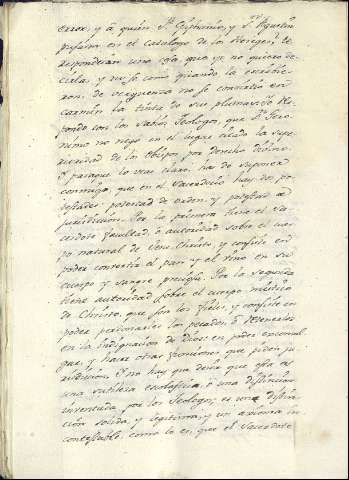 error, y à quien Sn. Epifanio, y Sn. Agustin
pusieron en el catalogo de los Hereges, te
responderan una cosa, que yo no quiero de-
cirla, y no sè como quando la escribie-
ron, de verguenza no se convirtio en
carmin la tinta de sus plumas. Yo Res-
pondo con los sabios Teologos, que Sn. Gero-
nimo no negò en el lugar citado la supe-
rioridad de los Obispos por derecho divino.
Y paraque lo veas claro, has de suponer
conmigo, que en el Sacerdocio hay dos po-
testades: potestad de orden, y potestad de
jurisdiccion. Por la primera tiene el Sa-
cerdote facultad, ò autoridad sobre el cuer-
po natural de Jesu-Christo, y consiste en
poder convertir el pan y el vino en su
cuerpo y sangre preciosa. Por la segunda
tiene autoridad sobre el cuerpo mistico
de Christo, que son los fieles, y consiste en
poder perdonarles los pecados, ò retenerlos
en la indignacion de Dios: en poder excomul-
gar, y hacer otras funciones que piden ju-
risdiccion. Y no hay que decir que esta es
una sutileza escolastica, ò una distincion
inventada por los Teologos; es una distin-
cion solida, y legitima, y un axioma in-
contestable, como lo es, que el Sacerdote